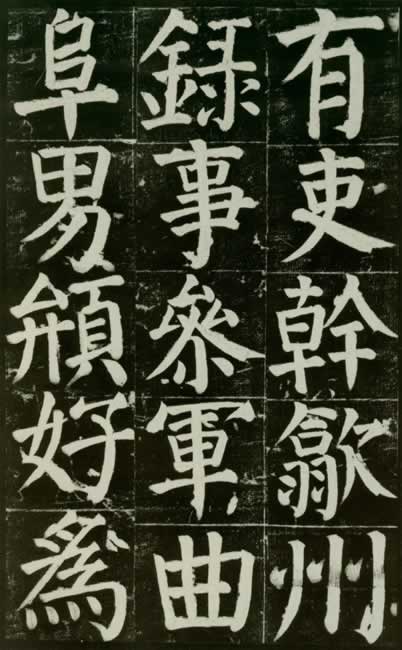 有吏幹歙州
錄事參軍曲
阜男好為